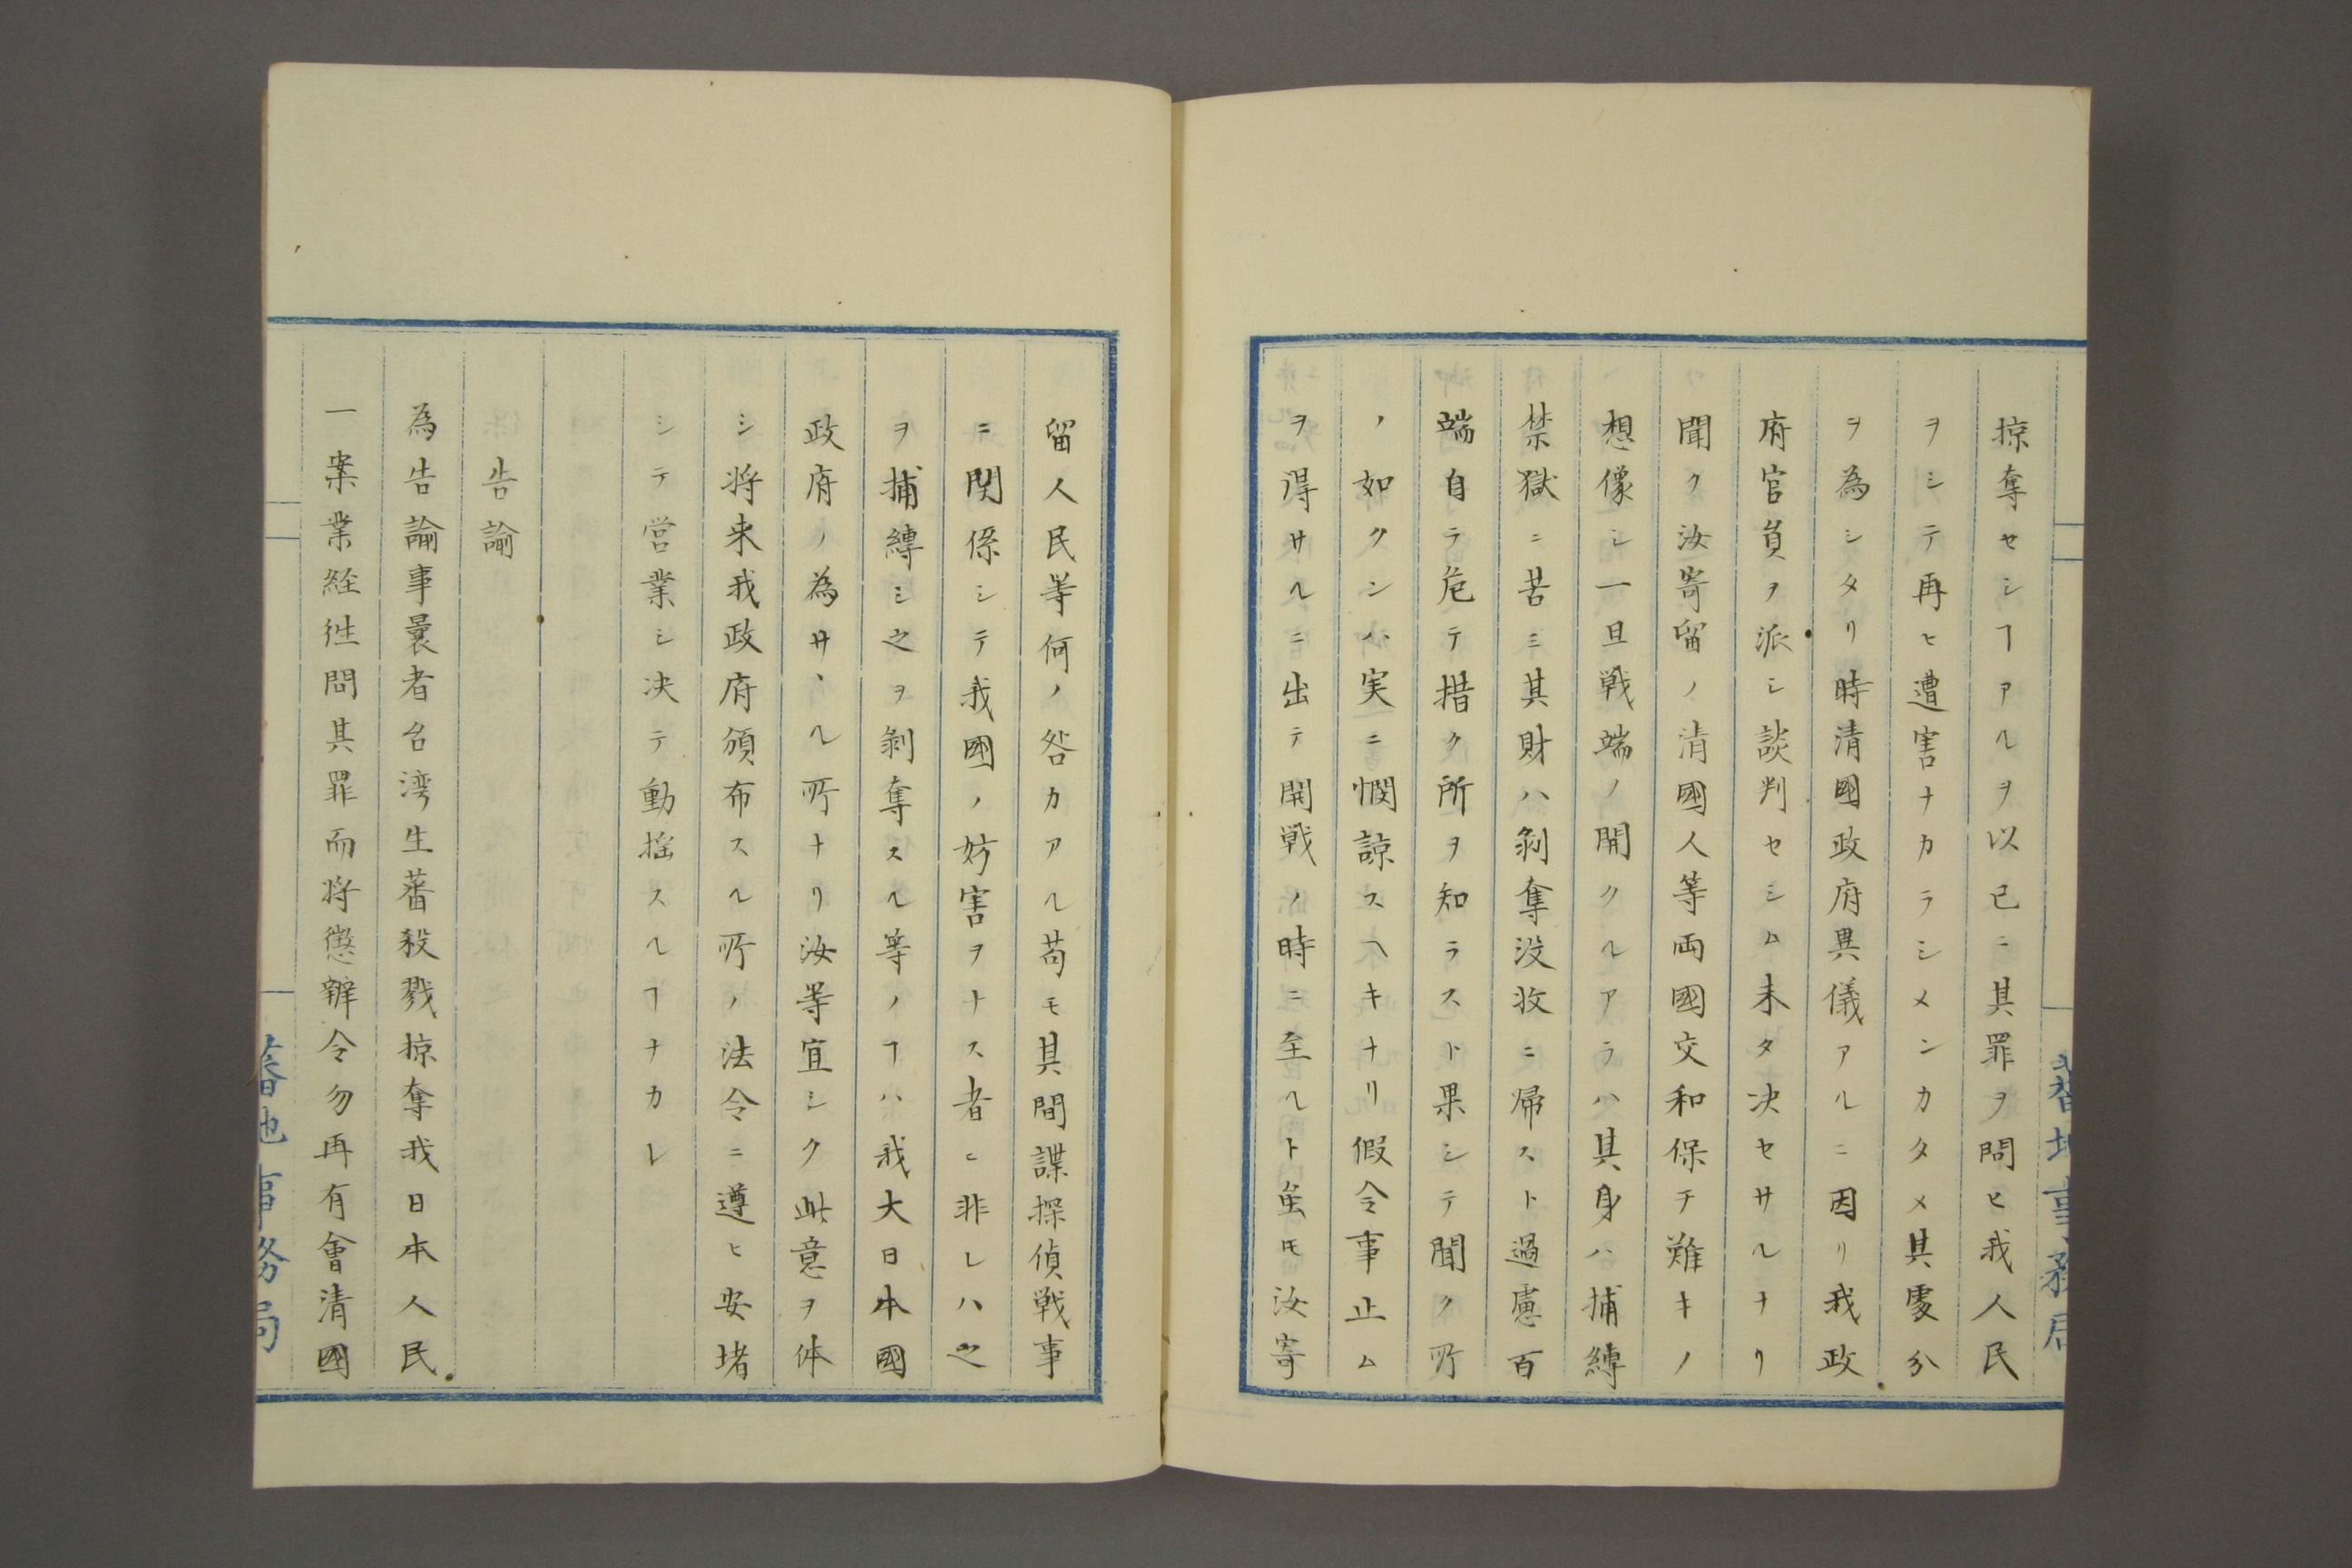 掠奪セシヿアルヲ以已ニ其罪ヲ問ヒ我人民
ヲシテ再ヒ遭害ナカラシメンカタメ其處分
ヲ為シタリ時清國政府異儀アルニ因リ我政
府官員ヲ派シ談判セシム未タ决セサルナリ
聞ク汝寄留ノ清國人等両國交和保チ難キノ
想像シ一旦戦端ノ開クルアラハ其身ハ捕縛
禁獄ニ苦ミ其財ハ剝奪没收ニ帰スト過慮百
端自ラ危テ措ク所ヲ知ラスト果シテ聞ク所
ノ如クンハ実ニ憫諒スヘキナリ假令事止ム
ヲ得サルニ出テ開戦ノ時ニ至ルト虽モ汝寄
留人民等何ノ咎カアル苟モ其間諜探偵戦事
ニ関係シテ我國ノ妨害ヲナス者ニ非レハ之
ヲ捕縛シ之ヲ剝奪スル等ノヿハ我大日本國
政府ノ為サヽル所ナリ汝等宜シク此意ヲ体
シ将来我政府頒布スル所ノ法令ニ遵ヒ安堵
シテ営業シ决テ動揺スルヿナカレ
告諭
為告諭事曩者台湾生蕃殺戮掠奪我日本人民
一案業経徃問其罪而将懲辦令勿再有會清國
蕃地事務局
蕃地事務局